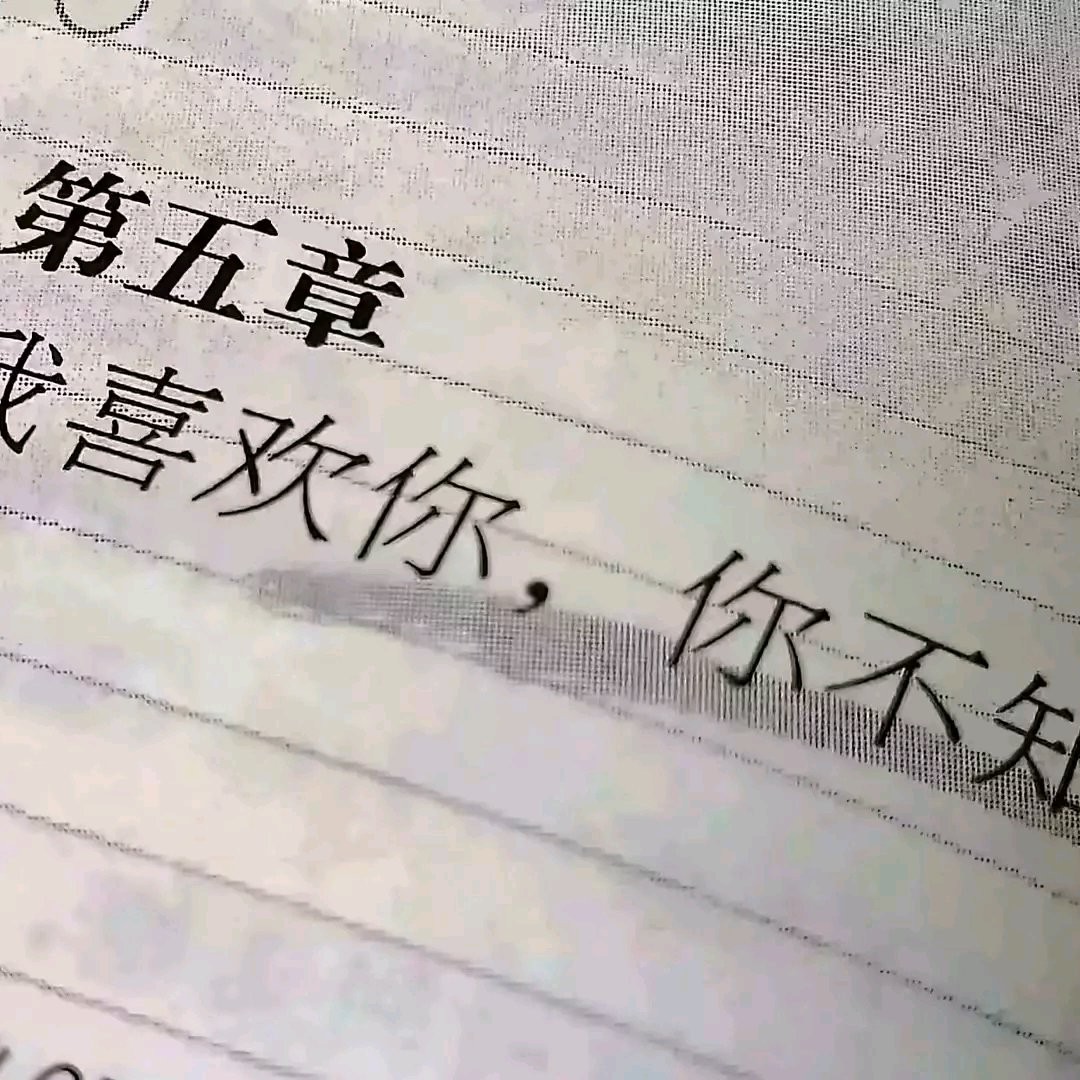 第五章
我喜欢你，你不知